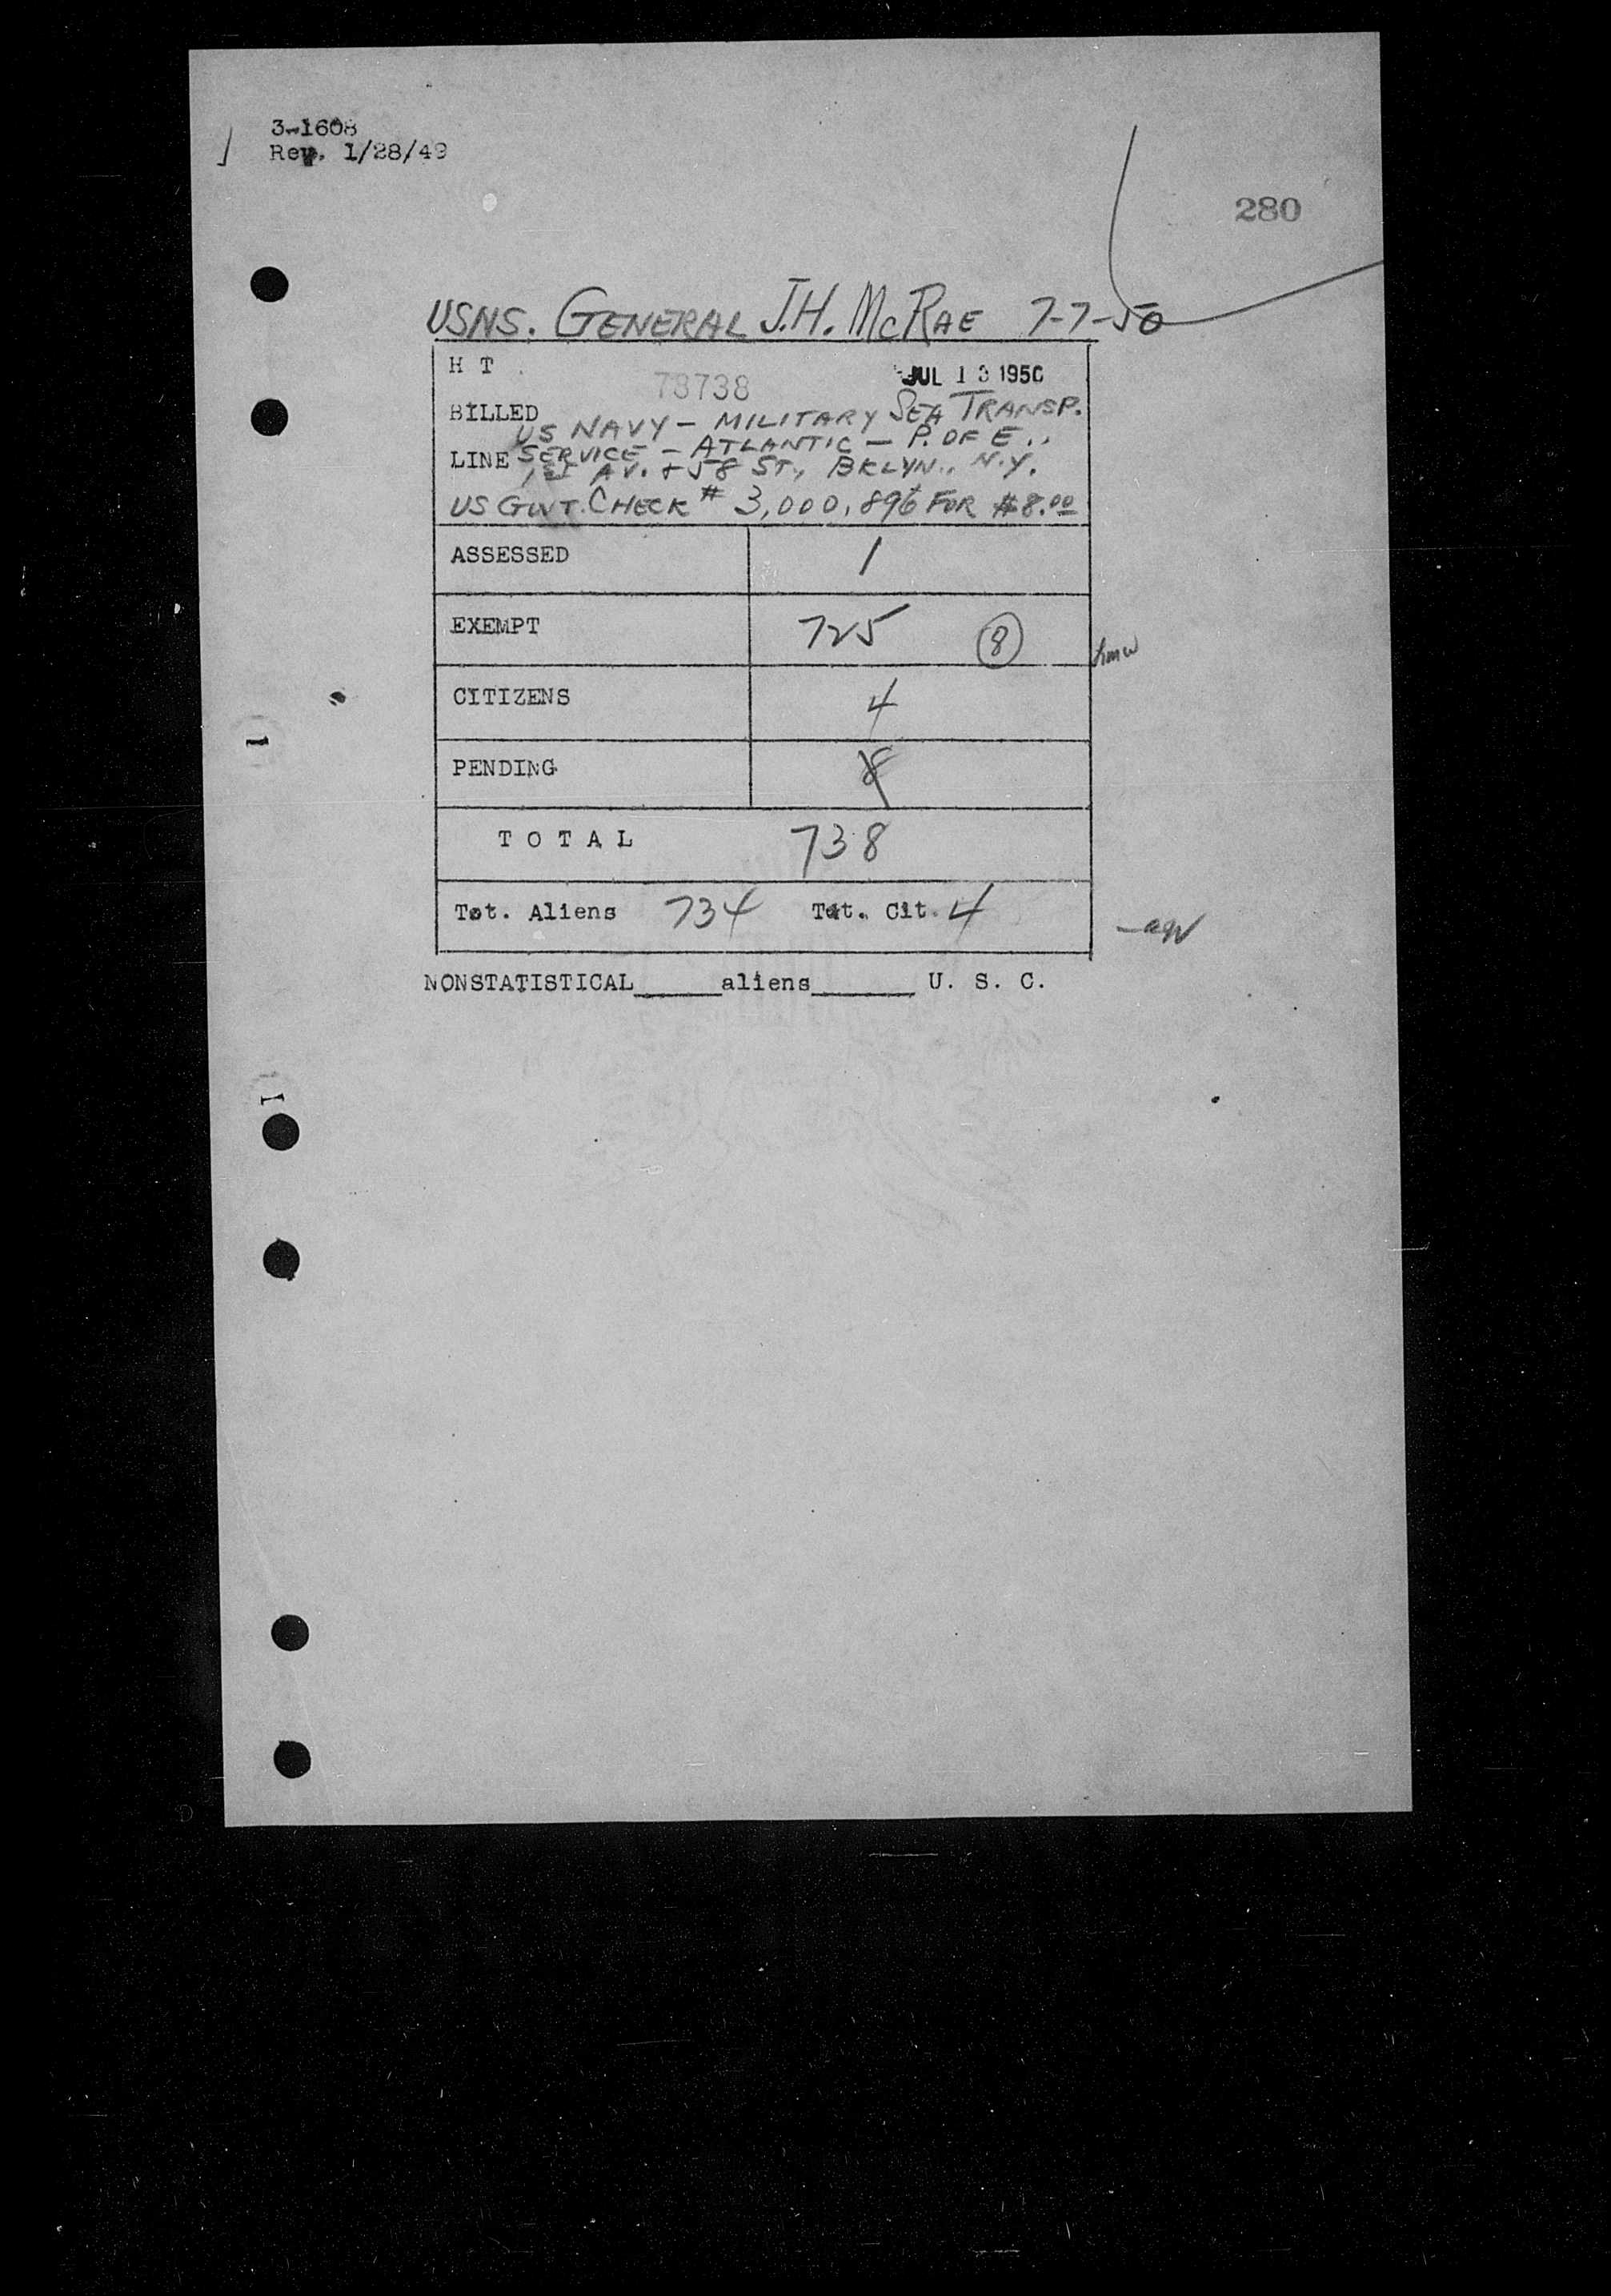 3-1608
Rev. 1/28/49
280
USNS. GENERAL J.H. McRAE 7-7-50
H T
78738 JUL 13 1950
BILLED US NAVY - MILITARY SEA TRANSP.
LINE SERVICE - ATLANTIC - P. OF E.,
1ST AV. + 58 ST., BKLYN., N.Y.
US GOVT. CHECK # 3,000,896 FOR $8.00
ASSESSED 1
EXEMPT 725 8
hmw
CITIZENS 4
PENDING 8
T O T A L 738
Tot. Aliens 734 Tot. Cit. 4
NONSTATISTICAL_____aliens______ U. S. C.
1
1